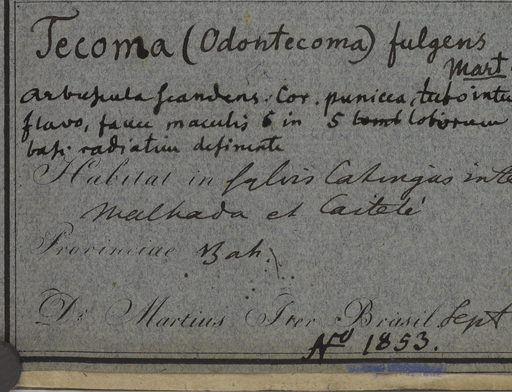 Tecoma (Odontecoma) fulgens
Mart
Arbuscula scandens. Cor. punicea, tubo intu
flavo, fauce maculis 6 in 5 loborum
basi radiatim definente
Habitat in sylvis Catingas inte
Malhada et Caiteté
Provinciae Bah.
Dr Martius Iter Brasil Sept
No 1853.